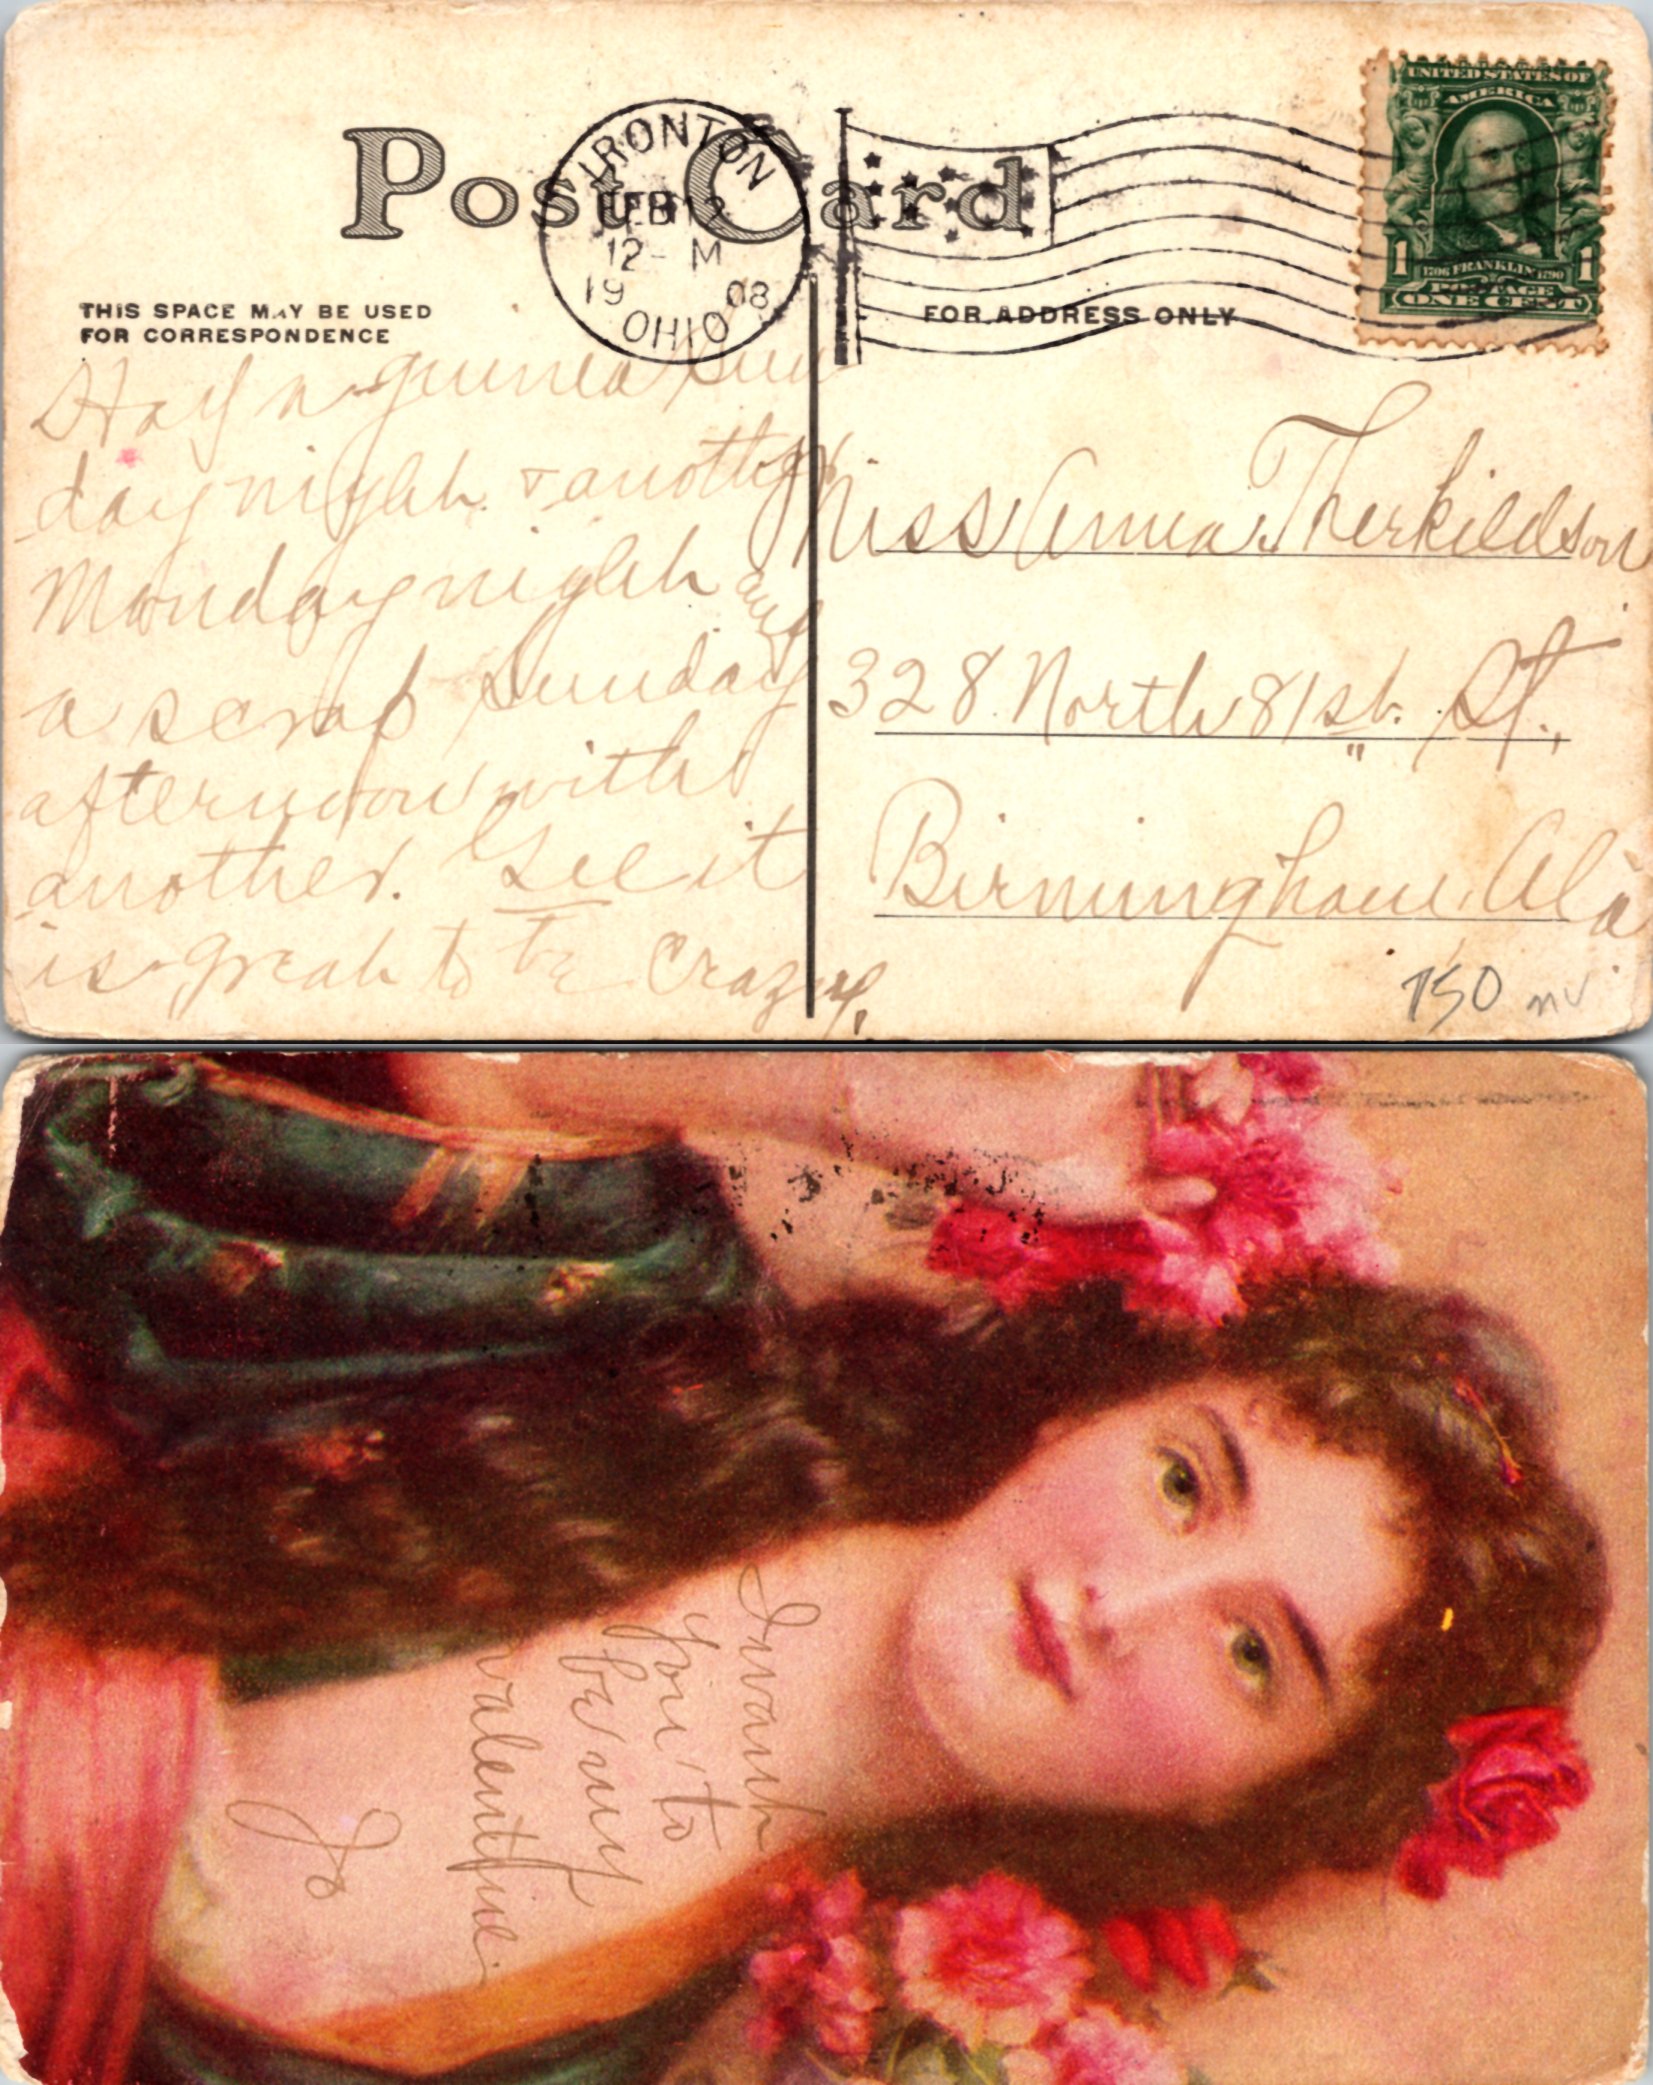 Post Card
IRONTON
FEB 12
12-M
1908
OHIO
UNITED STATES OF
AMERICA
1 1706 FRANKLIN 1790 1
POSTAGE
ONE CENT
THIS SPACE MAY BE USED
FOR CORRESPONDENCE
FOR ADDRESS ONLY
Had a guinea Sun
day night & another
Monday night and
a scrap Sunday
afternoon with
another. Gee it
is great to be crazy.
Miss Anna Therkildson
328 North 81st. St.,
Birmingham, Ala
150 nv
I want
you to
be my
valentine
Jo